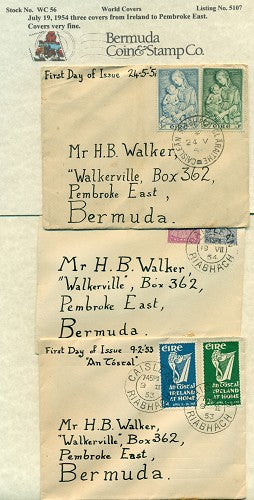 Stock No. WC 56 World Covers Listing No. 5107
July 19, 1954 three covers from Ireland to Pembroke East.
Covers very fine.
Bermuda
Coin & Stamp Co.
First Day of Issue 24-5-54
24 V
Mr H.B. Walker,
"Walkerville", Box 362,
Pembroke East,
Bermuda.
19 VII
54
RIABHACH
Mr H.B. Walker,
"Walkerville", Box 362,
Pembroke East,
Bermuda.
First Day of Issue 9-2-53
"An Tóstal"
ÉIRE
An Tóstal
IRELAND
AT HOME
ÉIRE
An Tóstal
IRELAND
AT HOME
53
RIABHACH
53
RIABHACH
Mr H.B. Walker,
"Walkerville", Box 362,
Pembroke East,
Bermuda.